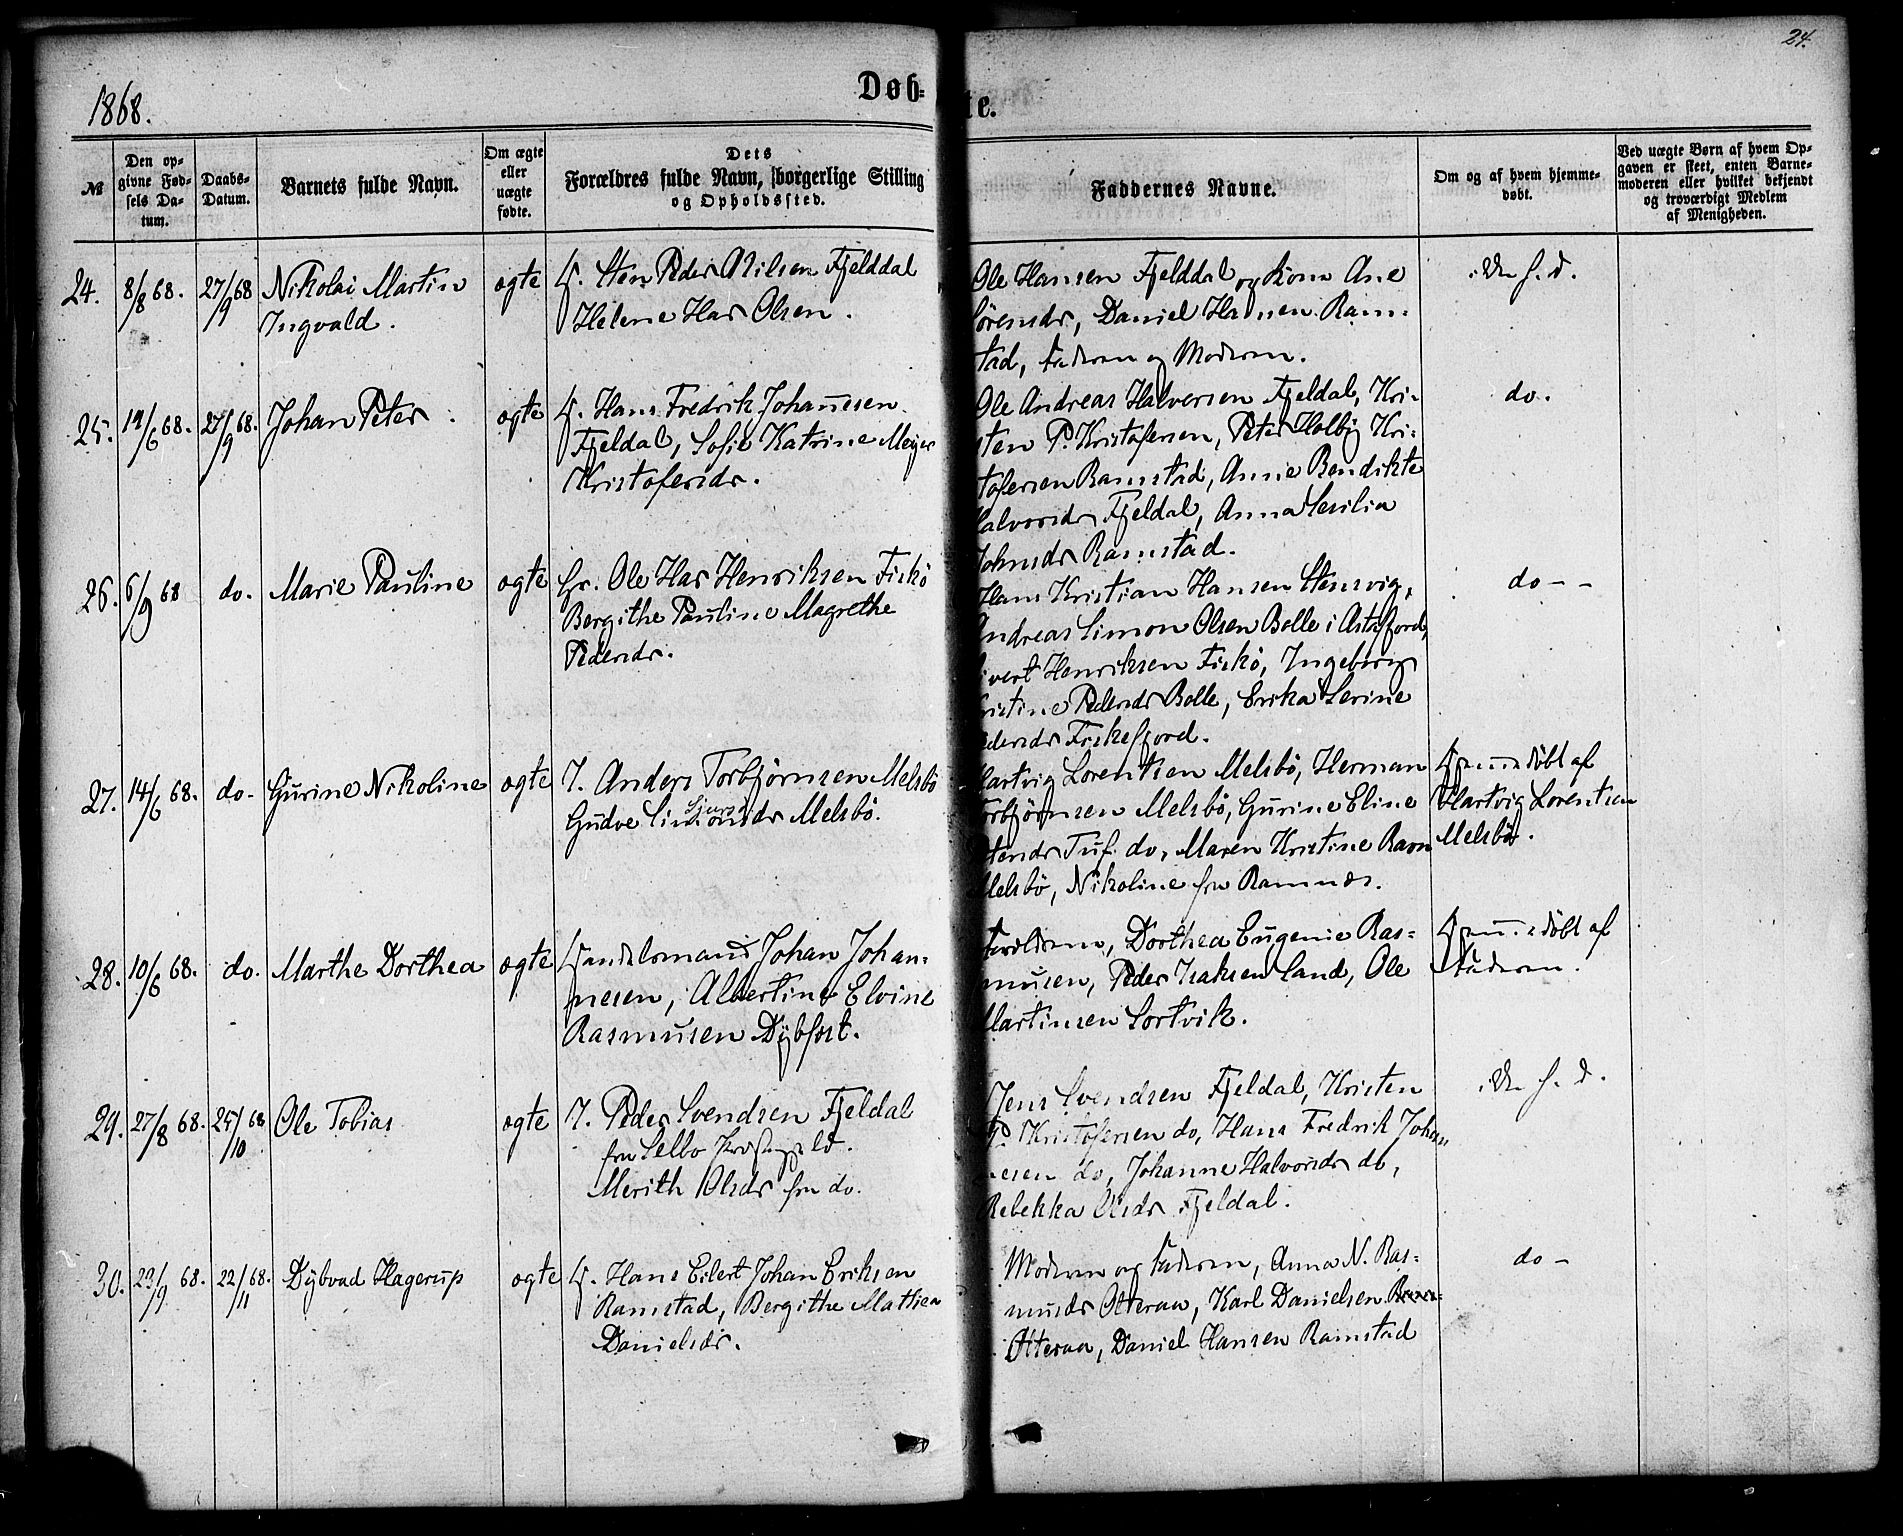 24.
1868.
Døb-
te.
№
Den op-
givne Fød-
sels Da-
tum.
Daabs-
Datum.
Barnets fulde Navn.
Om ægte
eller
uægte
fødte.
Dets
Forældres fulde Navn, borgerlige Stilling
og Opholdssted.
Faddernes Navne.
Om og af hvem hjemme-
døbt.
Ved uægte Børn af hvem Op-
gaven er skeet, enten Barne-
moderen eller hvilket bekjendt
og troværdigt Medlem
af Menigheden.
24.
8/8 68.
27/9 68
Nikolai Martin
Ingvald.
ægte
Sten Peder Nilsen Fjelddal
Helene Has Olsen.
Ole Hansen Fjelddal og Kone Ane
Sörensdr, Daniel Hansen Ram-
stad, Faderen og Moderen.
25.
27/9 68.
Johan Peter.
ægte
Hans Fredrik Johannesen
Fjeldal, Sofie Katrine Meyer
Kristofersdr.
Ole Andreas Halversen Fjeldal, Kri-
sten P. Kristofersen, Peter Holbig Kri-
stofersen Ramstad, Anne Bendikte
Halvorsdr Fjeldal, Anna Cesilia
Johnsdr Ramstad.
do.
26.
6/9 68
do.
Marie Pauline
ægte
Ole Has Henriksen Fiskö
Bergithe Pauline Magrethe
Pedersdr.
Hans Kristian Hansen Stensvig,
Andreas Simon Olsen Bolle i Astafjord,
Sivert Henriksen Fiskö, Ingeborg
Kristine Pedersdr Bolle, Erika Serine
Pedersdr Fiskefjord.
do - -
27.
14/6 68.
do-
Gurine Nikoline
ægte
I. Anders Torbjörnsen Melsbö
Gudve Melsbö.
Hartvig Lorentsen Melsbö, Herman
Torbjörnsen Melsbö, Gurine Eline
do, Maren Kristine Ravn
Melsbö, Nikoline fra Ramnæs.
döbt af
Hartvig Lorentsen
Melsbö.
28.
10/6 68.
do.
Marthe Dorthea
ægte
Handelsmand Johan Johan-
nesen, Albertine Elvine
Rasmusen Dybfost.
Forældrene, Dorthea Eugenie Ras-
musen, Peder Isaksen Sand, Ole
Martinsen Sortvik.
döbt af
Faderen.
29.
27/8 68.
25/10 68
Ole Tobias
ægte
I. Peder Svendsen Fjeldal
fra Selbo Præstegjeld.
Merith Olsdr fra do.
Jens Svendsen Fjeldal, Kristen
P Kristofersen do, Hans Fredrik Johan
nesen do, Johanne Halvorsdr do,
Rebekka Olsdr Fjeldal.
30.
23/9 68.
22/11 68.
Dybvad Hagerup
ægte
Hans Eilert Johan Eriksen
Ramstad, Bergithe Mathea
Danielsdr.
Moderen og Faderen, Anna N. Ras-
musdr Otteraa, Karl Danielsen
Otteraa, Daniel Hansen Ramstad
do -